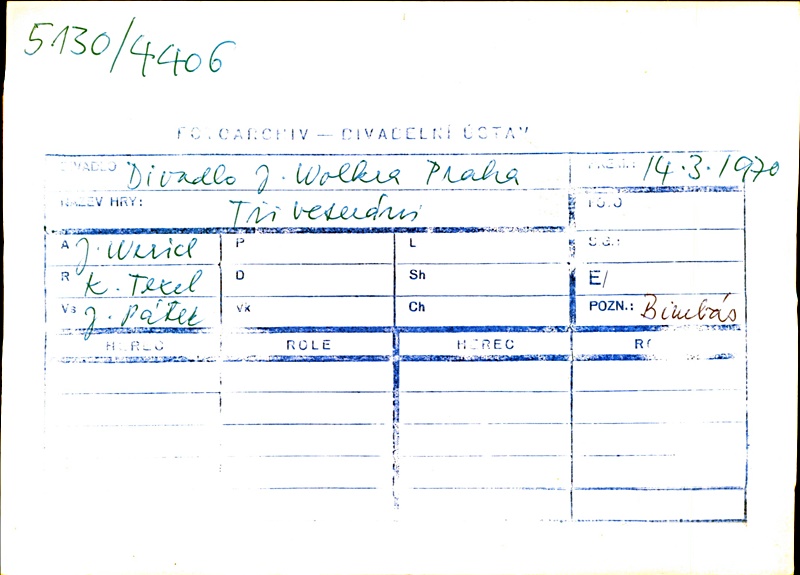 5130/4406
FOTOARCHIV — DIVADELNÍ ÚSTAV
DIVADLO Divadlo J. Wolkra Praha 14.3.1970
NÁZEV HRY: Tři veteráni
A J. Werich P L
R K. Texel D Sh E/
Vs J. Pátek Vk Ch POZN.: Bimbás
HEREC ROLE HEREC